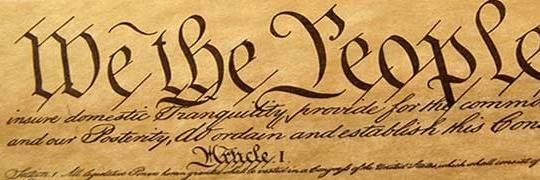 We the People
insure domestic Tranquility, provide for the commo
and our Posterity, do ordain and establish this Con
Article. I.
Section. 1. All legislative Powers herein granted shall be vested in a Congress of the United States, which shall consist of